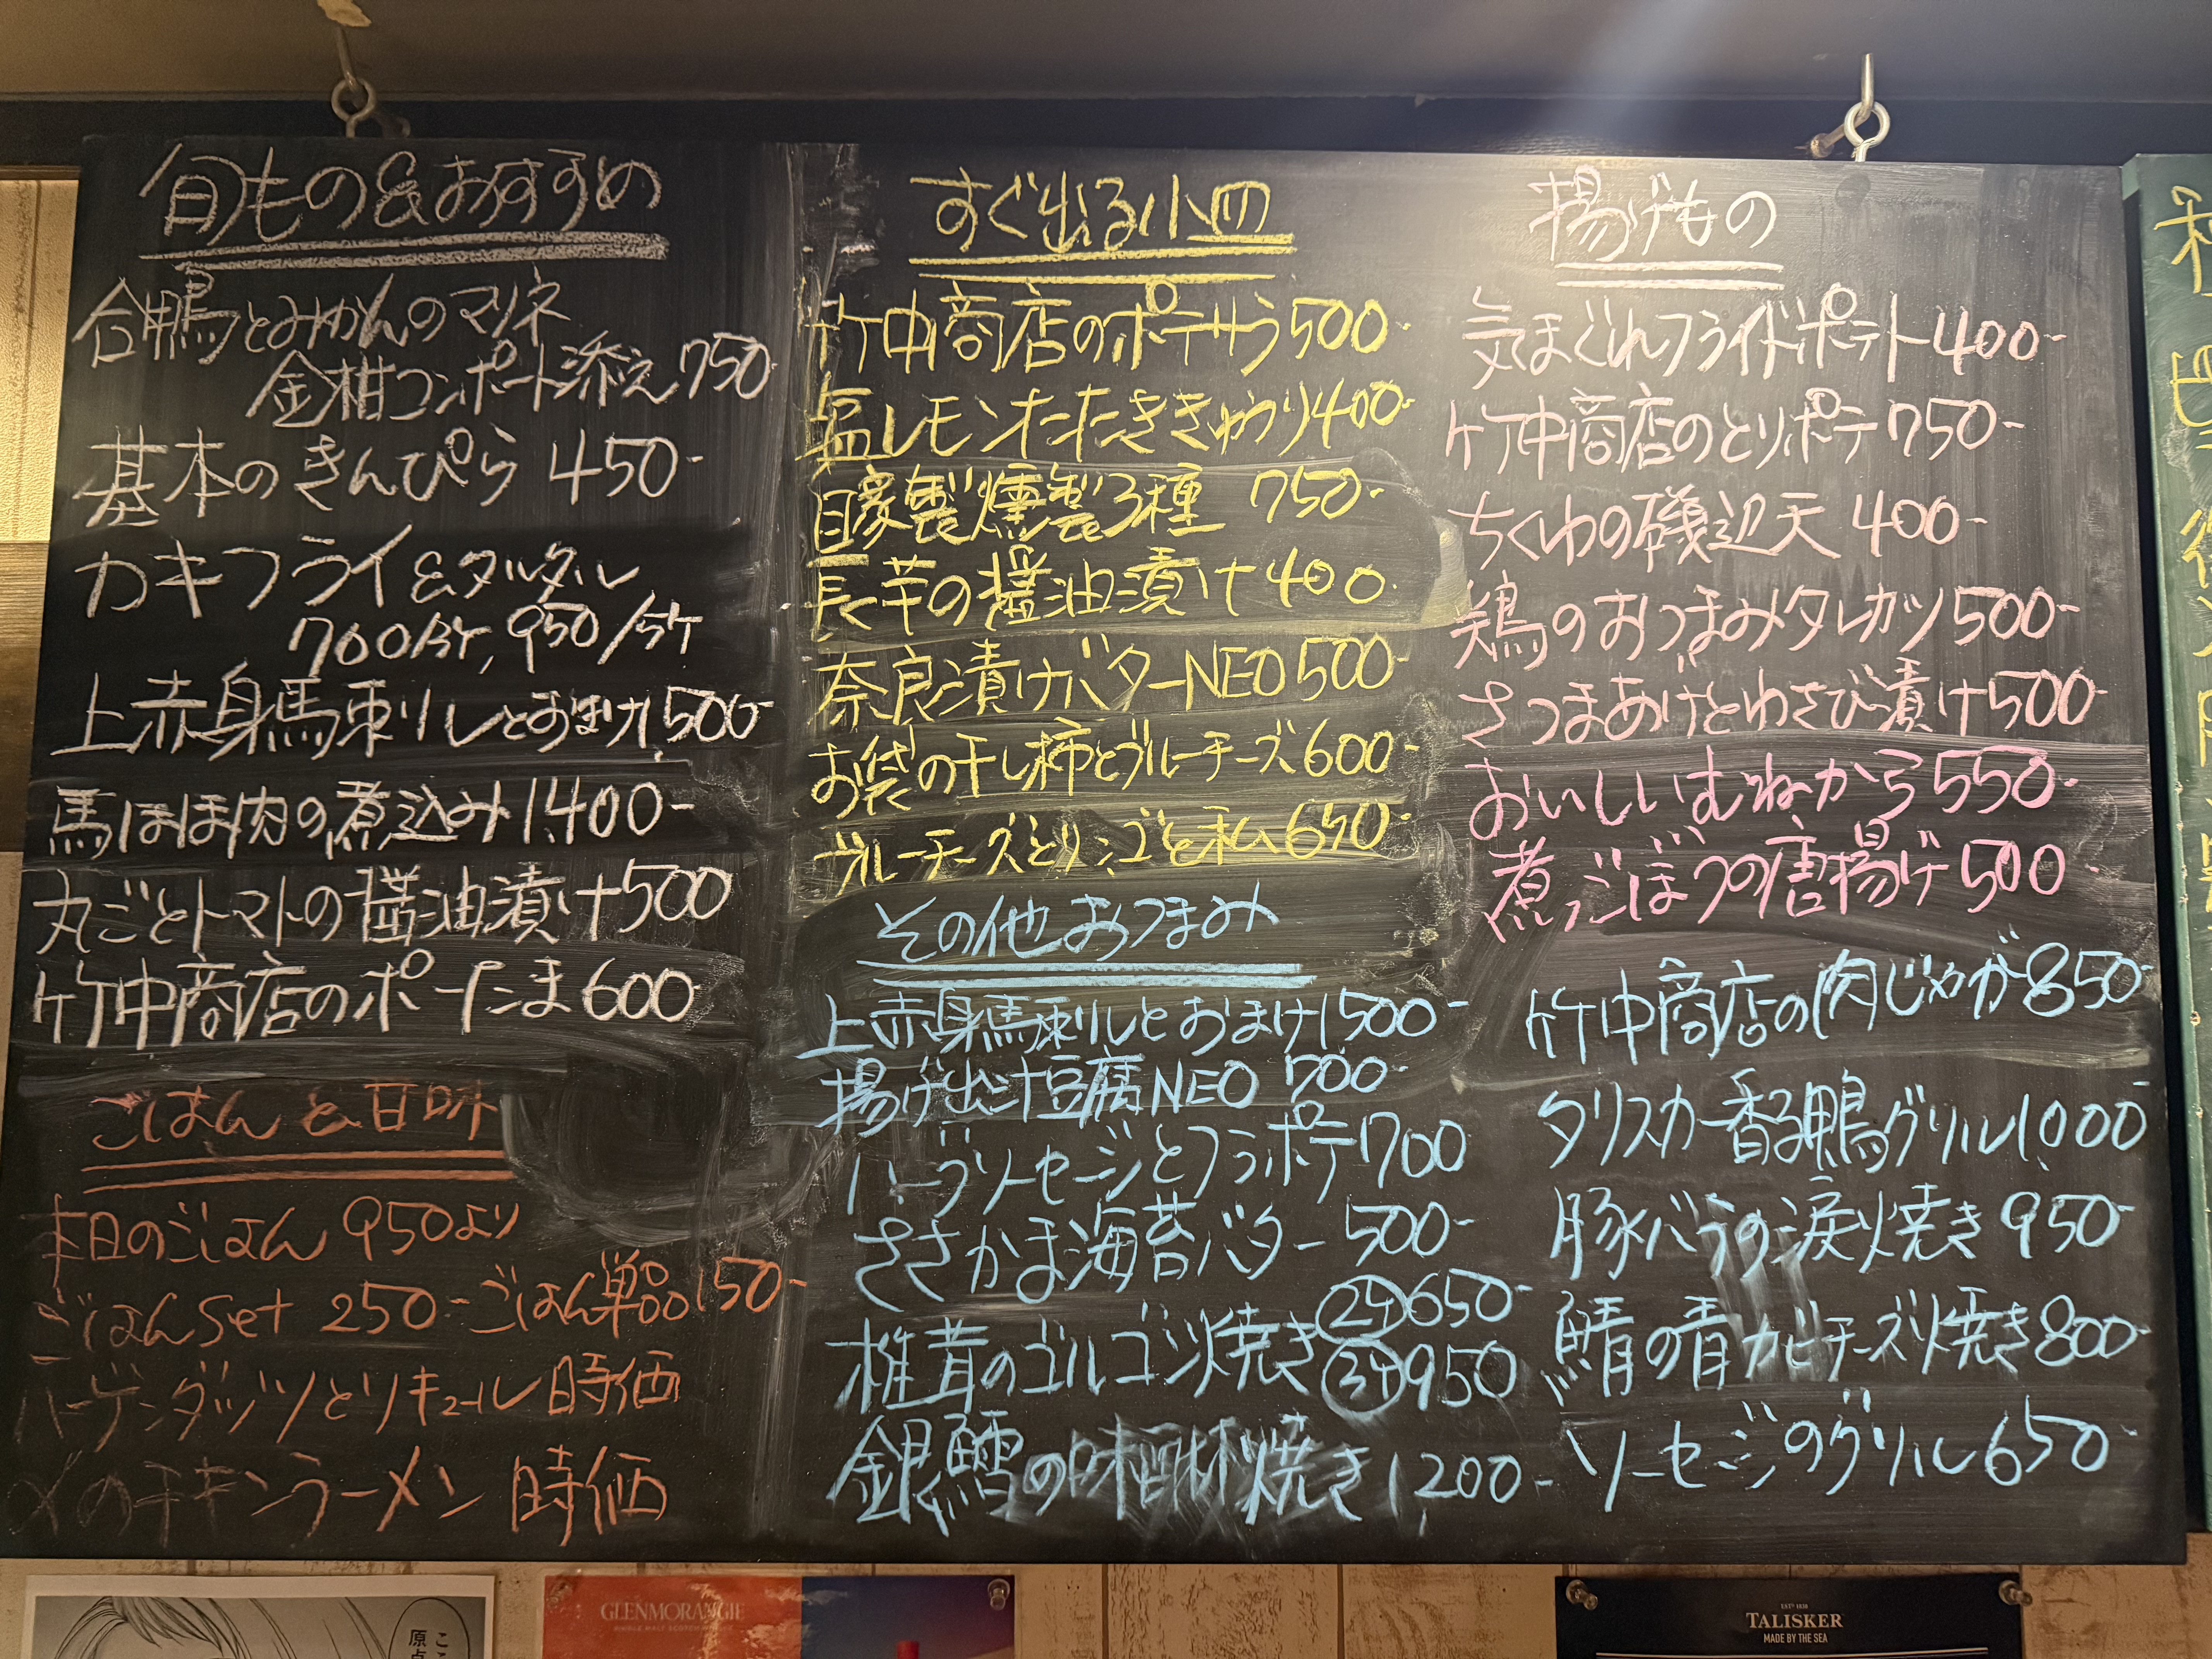 旬もの&おすすめ
合鴨とみかんのマリネ
金柑コンポート添え750
基本のきんぴら 450-
カキフライ&タルタル
700/4ケ, 950/5ケ
上赤身馬刺しとおまけ1,500-
馬ほほ肉の煮込み1,400-
丸ごとトマトの醤油漬け500
竹中商店のポーたま600
ごはんと甘味
本日のごはん 950より
ごはんset 250- ごはん単品150-
ハーゲンダッツとリキュール 時価
〆のチキンラーメン 時価
すぐ出る小皿
竹中商店のポテサラ500-
塩レモンたたききゅうり400-
自家製燻製3種 750-
長芋の醤油漬け400
奈良漬けバターNEO500-
お袋の干し柿とブルーチーズ600-
ブルーチーズとリンゴと私650-
その他おつまみ
上赤身馬刺しとおまけ1,500-
揚げ出汁豆腐NEO 700-
ハーブソーセージとフラポテ700
ささかま海苔バター 500-
椎茸のゴルゴンゾ焼き
2ケ650-
3ケ950
銀鱈の味醂焼き1,200-
揚げもの
気まぐれフライドポテト400-
竹中商店のとりポテ750-
ちくわの磯辺天 400-
鶏のおつまみタレカツ500-
さつまあげとわさび漬け500-
おいしいむねから550-
煮ごぼうの唐揚げ500
竹中商店の肉じゃが850-
タリスカー香る鴨グリル1,000-
豚バラの涙焼き 950-
鯖の青カビチーズ焼き800-
ソーセージのグリル650-
GLENMORANGIE
TALISKER
MADE BY THE SEA